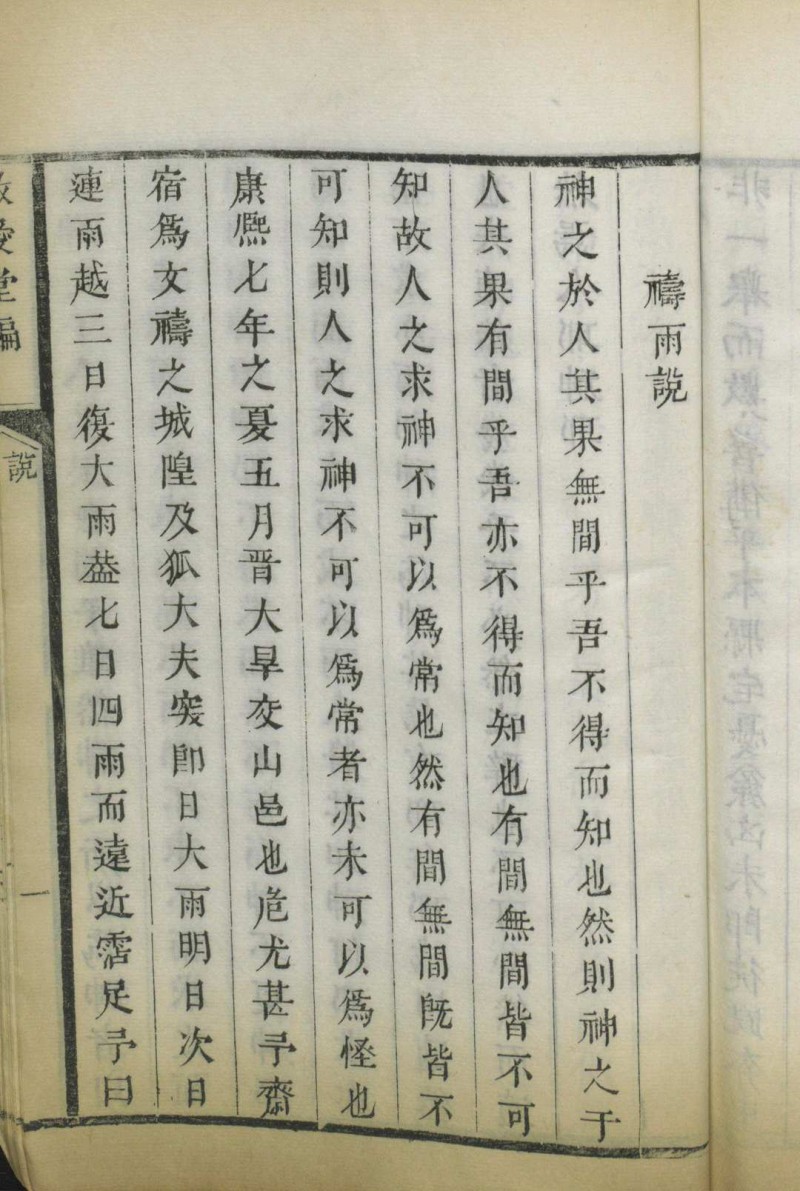 禱雨說
神之於人其果無間乎吾不得而知也然則神之于
人其果有間乎吾亦不得而知也有間無間皆不可
知故人之求神不可以爲常也然有間無間既皆不
可知則人之求神不可以爲常者亦未可以爲怪也
康熙七年之夏五月晋大旱交山邑也危尤甚予齋
宿爲文禱之城隍及狐大夫突即日大雨明日次日
連雨越三日復大雨葢七日四雨而遠近霑足予曰
愛堂編
說
一